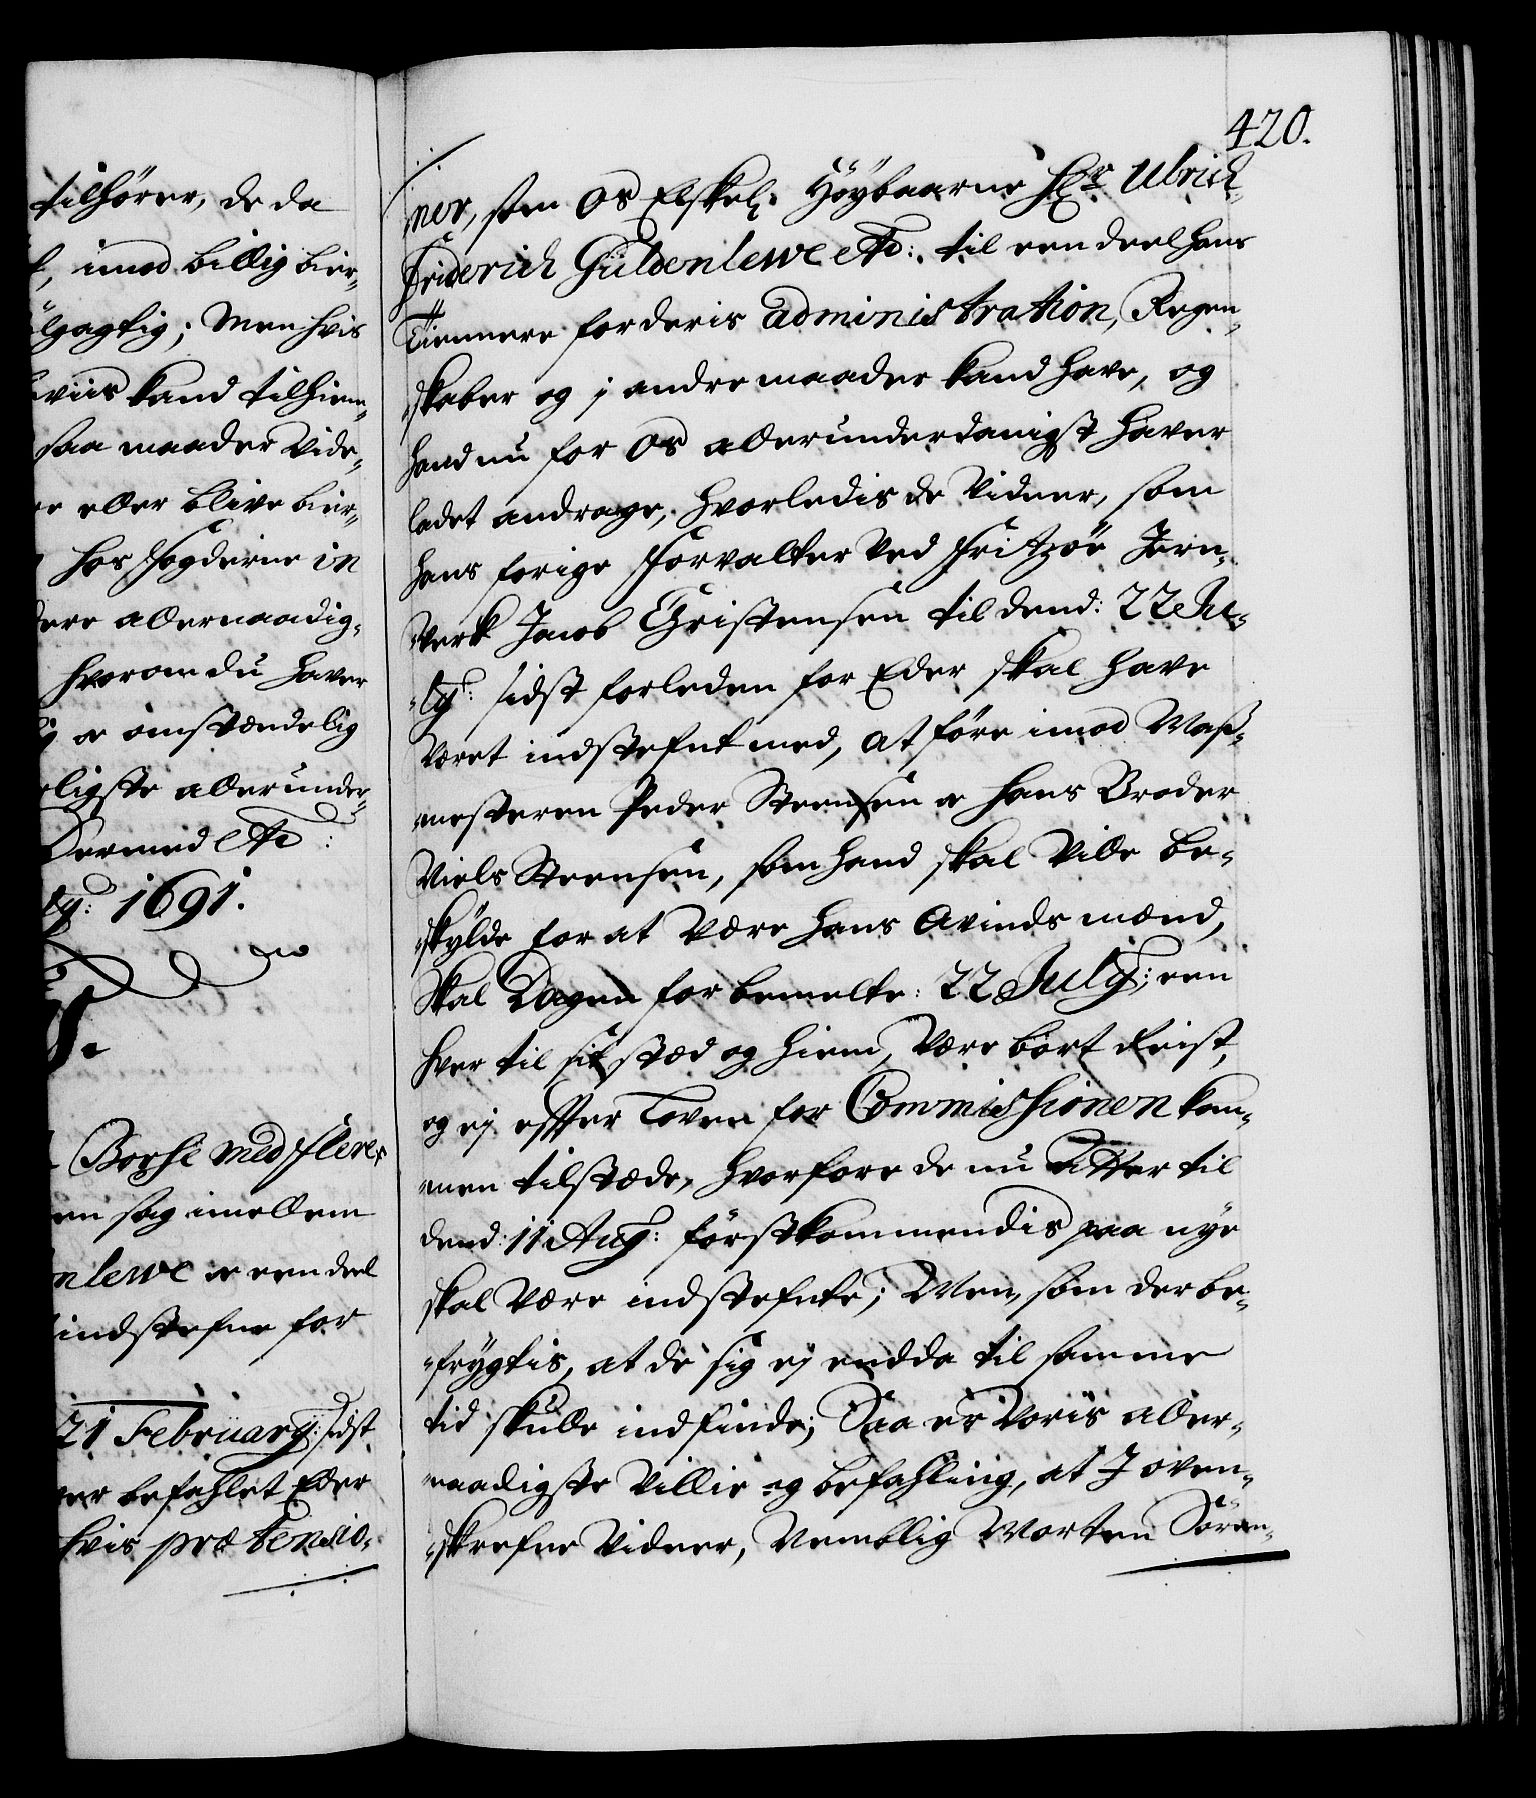 tilhörer, de da
imod billig bir-
gagtig; Men hvis
viis kand tilhiem-
saa maader Vide-
er eller blive bir-
hos Fogderne in
dere allernaadig-
hvorom du haver
og omstændelig
ligste allerunder-
Dermed etc:
ly: 1691.
Borse med flere
en sag imellem
nlewe og een deel
indstefne for
21 Februarij: sidst
er befahlet Eder
hvis prætensio-
420.
ner, som Os Elskel. Höybaarne Hr. Ulrich
Friderich Güldenlewe etc: til een deel hans
Tiennere for deris administration, Regen-
skaber og j andre maader kand have, og
hand nu for Os allerunderdanigst haver
ladet andrage, hvorledis de Vidner, som
hans forige Forvalter Ved Fritzöe Jern-
Verk Jacob Christensen til dend: 22 Ju-
ly: sidst forleden for Eder skal have
Været indstefnt med, at före imod Mas-
mesteren Peder Steensen og hans Broder
Niels Steensen, som hand skal Ville be-
skylde for at Være hans Avindsmænd,
Skal Dagen for bemelte: 22 July: een
hver til sit stæd og hiem, Være bort Reist,
og ej effter Loven for Commissionen kom-
men tilstæde, hvorfore de nu atter til
dend: 11 Aug: förstkommendis paa nye
skal Være indstefnte; Men, som der be-
frygtis, at de sig ej endda til samme
tid skulle indfinde; Saa er Voris aller-
naadigste Villie og befahling, at J oven-
skrefne Vidner, Nemblig Morten Sören-